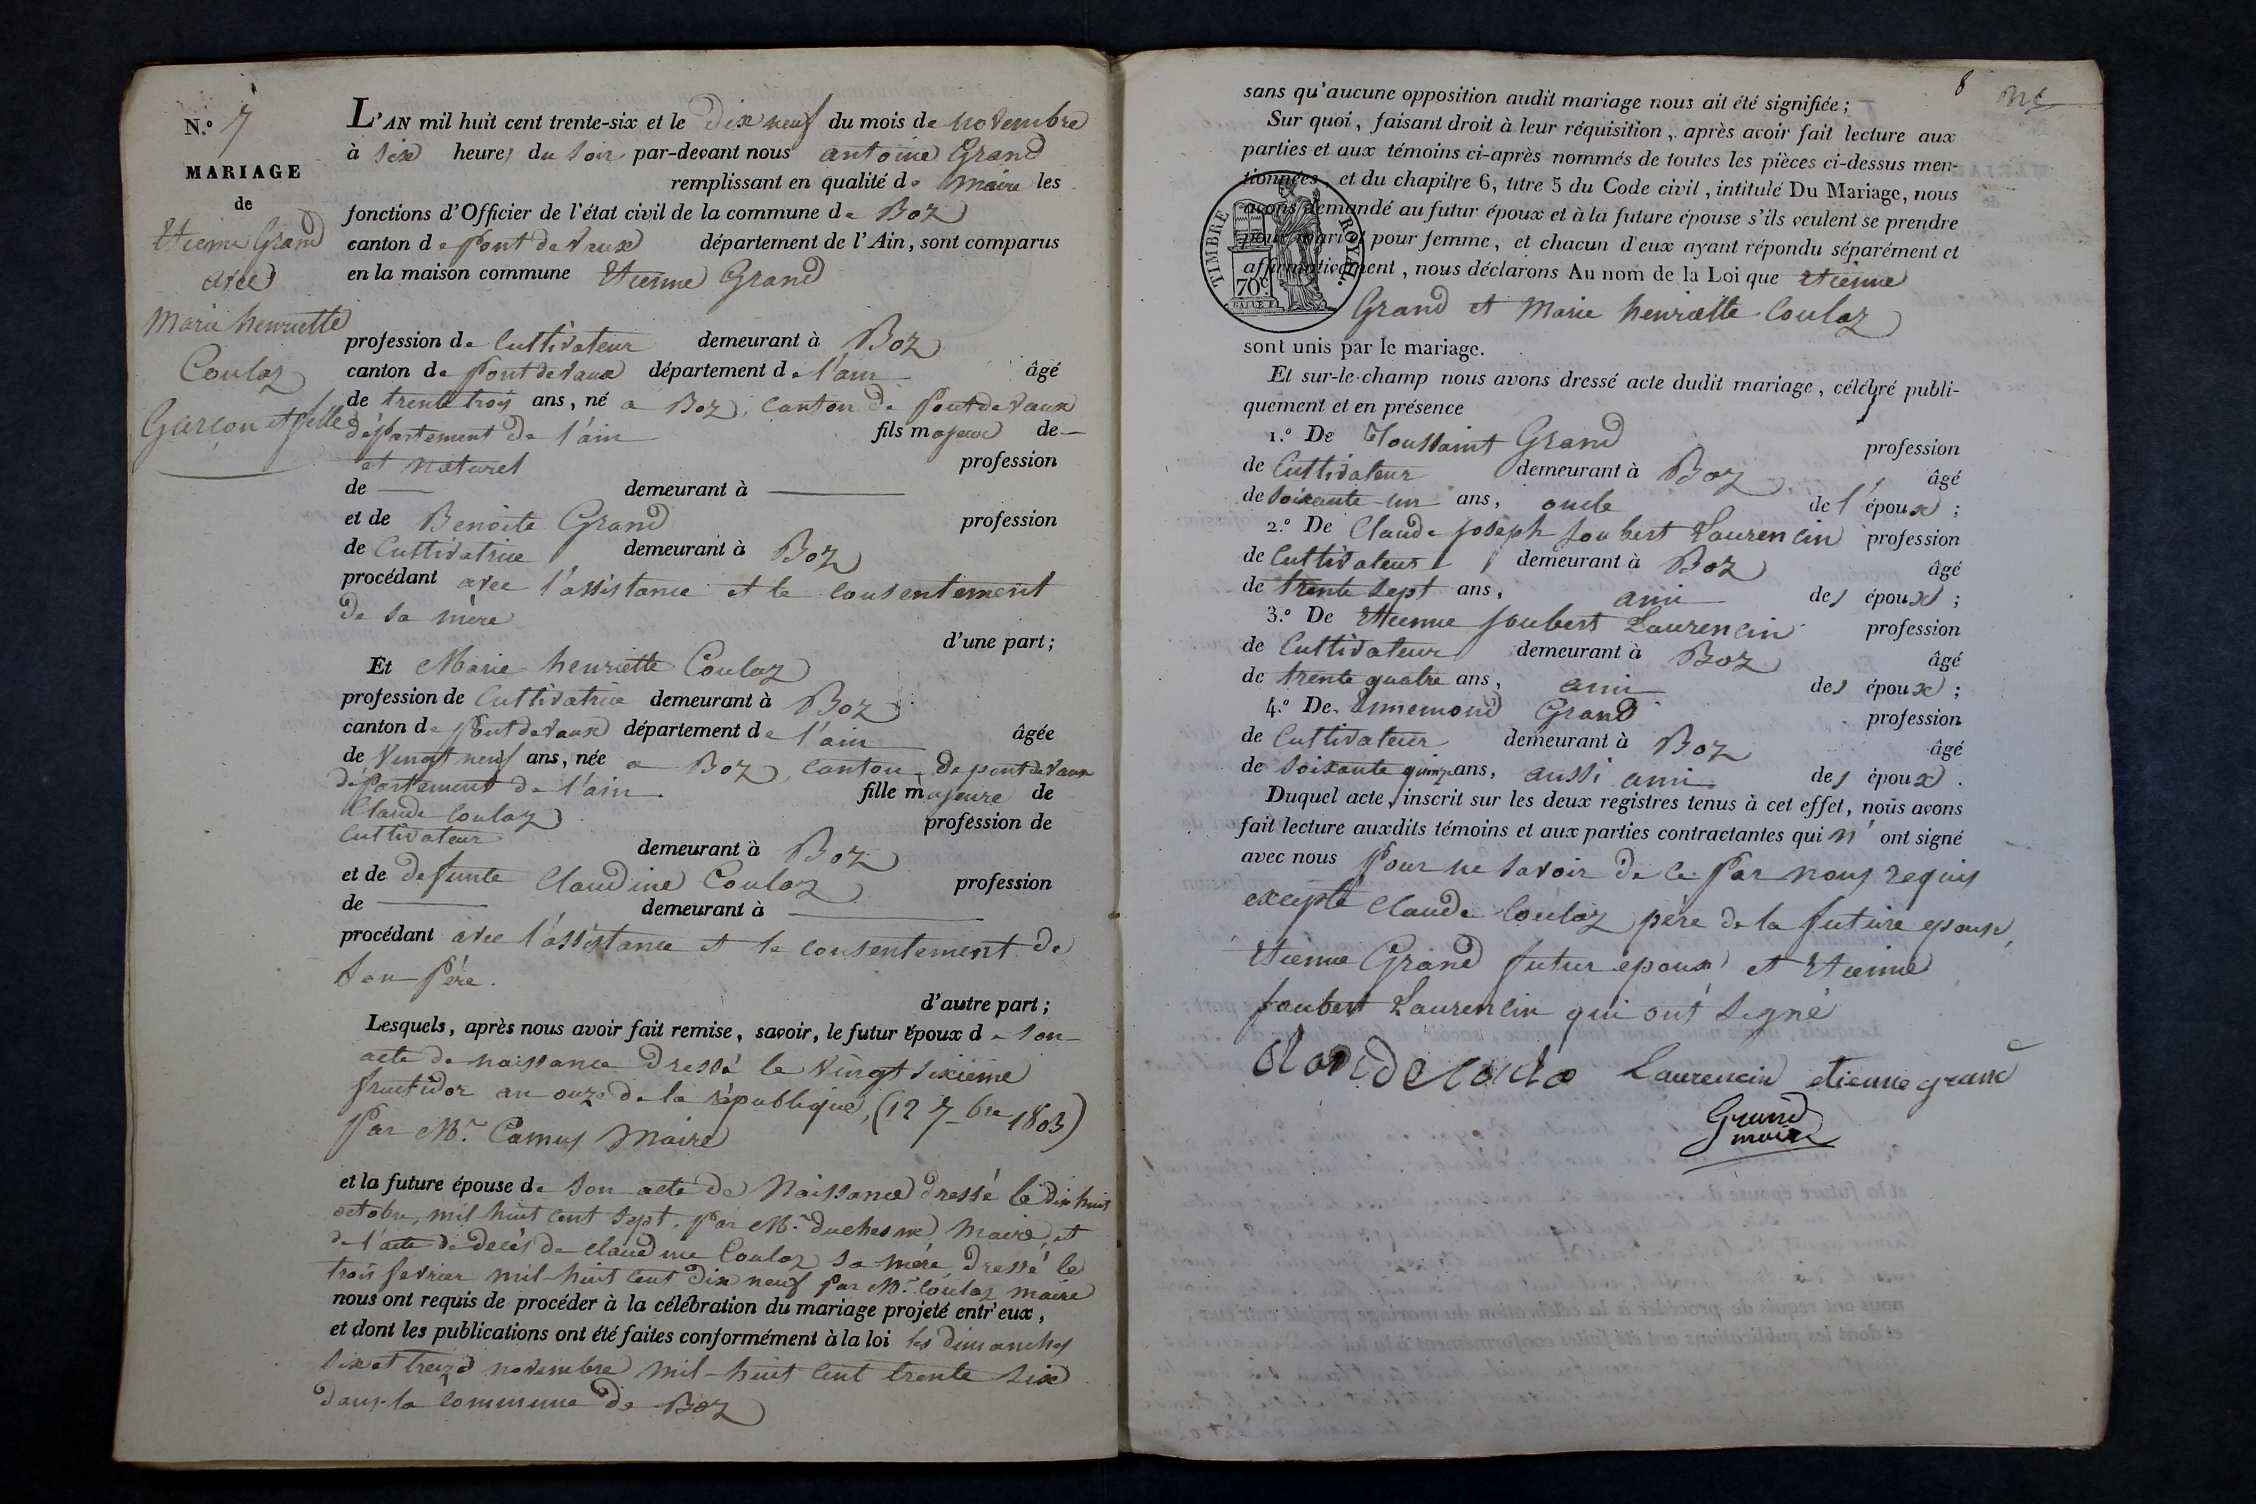 N.º 7
MARIAGE
de
Etienne Grand
avec
Marie henriette
Coulaz
Garçon et fille
L'AN mil huit cent trente-six et le dix neuf du mois de novembre
à six heures du soir par-devant nous antoine Grand
remplissant en qualité de maire les
fonctions d'Officier de l'état civil de la commune de Boz
canton de Pont de Vaux département de l'Ain, sont comparus
en la maison commune Etienne Grand
profession de Cultivateur demeurant à Boz
canton de Pont de Vaux département de l'ain âgé
de trente trois ans, né a Boz, canton de Pont de Vaux
département de l'ain fils majeur de
et naturel profession
de demeurant à
et de Benoite Grand profession
de Cultivatrice demeurant à Boz
procédant avec l'assistance et le consentement
de sa mère
d'une part;
Et Marie henriette Coulaz
profession de Cultivatrice demeurant à Boz
canton de Pont de Vaux département de l'ain âgée
de vingt neuf ans, née a Boz, canton de pont de Vaux
département de l'ain fille majeure de
Claude Coulaz profession de
Cultivateur demeurant à Boz
et de defunte Claudine Coulaz profession
de demeurant à
procédant avec l'assistance et le consentement de
son Père.
d'autre part;
Lesquels, après nous avoir fait remise, savoir, le futur époux de son
acte de naissance dressé le vingt sixième
fructidor an onze de la république, (12 7bre 1803)
Par Mr. Camus Maire
et la future épouse de son acte de Naissance dressé le dix huit
octobre, mil huit cent sept, Par Mr. duchesne Maire, et
de l'acte de décès de Claudine Coulaz sa mère dressé le
trois fevrier mil-huit cent dix neuf par Mr. Coulaz maire
nous ont requis de procéder à la célébration du mariage projeté entr'eux,
et dont les publications ont été faites conformément à la loi les dimanches
six et treize novembre mil-huit cent trente six
dans la commune de Boz
8
sans qu'aucune opposition audit mariage nous ait été signifiée;
Sur quoi, faisant droit à leur réquisition, après avoir fait lecture aux
parties et aux témoins ci-après nommés de toutes les pièces ci-dessus men-
tionnées, et du chapitre 6, titre 5 du Code civil, intitulé Du Mariage, nous
avons demandé au futur époux et à la future épouse s'ils veulent se prendre
pour mari et pour femme, et chacun d'eux ayant répondu séparément et
affirmativement, nous déclarons Au nom de la Loi que Etienne
TIMBRE ROYAL.
70c.
Grand et Marie henriette Coulaz
sont unis par le mariage.
Et sur-le-champ nous avons dressé acte dudit mariage, célébré publi-
quement et en présence
1.º De Toussaint Grand profession
de Cultivateur demeurant à Boz âgé
de soixante-un ans, oncle de l'époux;
2.º De Claude joseph joubert Laurencin profession
de Cultivateur demeurant à Boz âgé
de trente sept ans, ami des époux;
3.º De Etienne joubert Laurencin profession
de Cultivateur demeurant à Boz âgé
de trente quatre ans, ami des époux;
4.º De Annemond Grand profession
de Cultivateur demeurant à Boz âgé
de soixante quinze ans, aussi ami des époux.
Duquel acte, inscrit sur les deux registres tenus à cet effet, nous avons
fait lecture auxdits témoins et aux parties contractantes qui n'ont signé
avec nous Pour ne savoir de ce Par nous requis
excepté Claude Coulaz père de la future épouse,
Etienne Grand futur époux et Etienne
joubert Laurencin qui ont signé
Laurencin etienne grand
Grand
maire